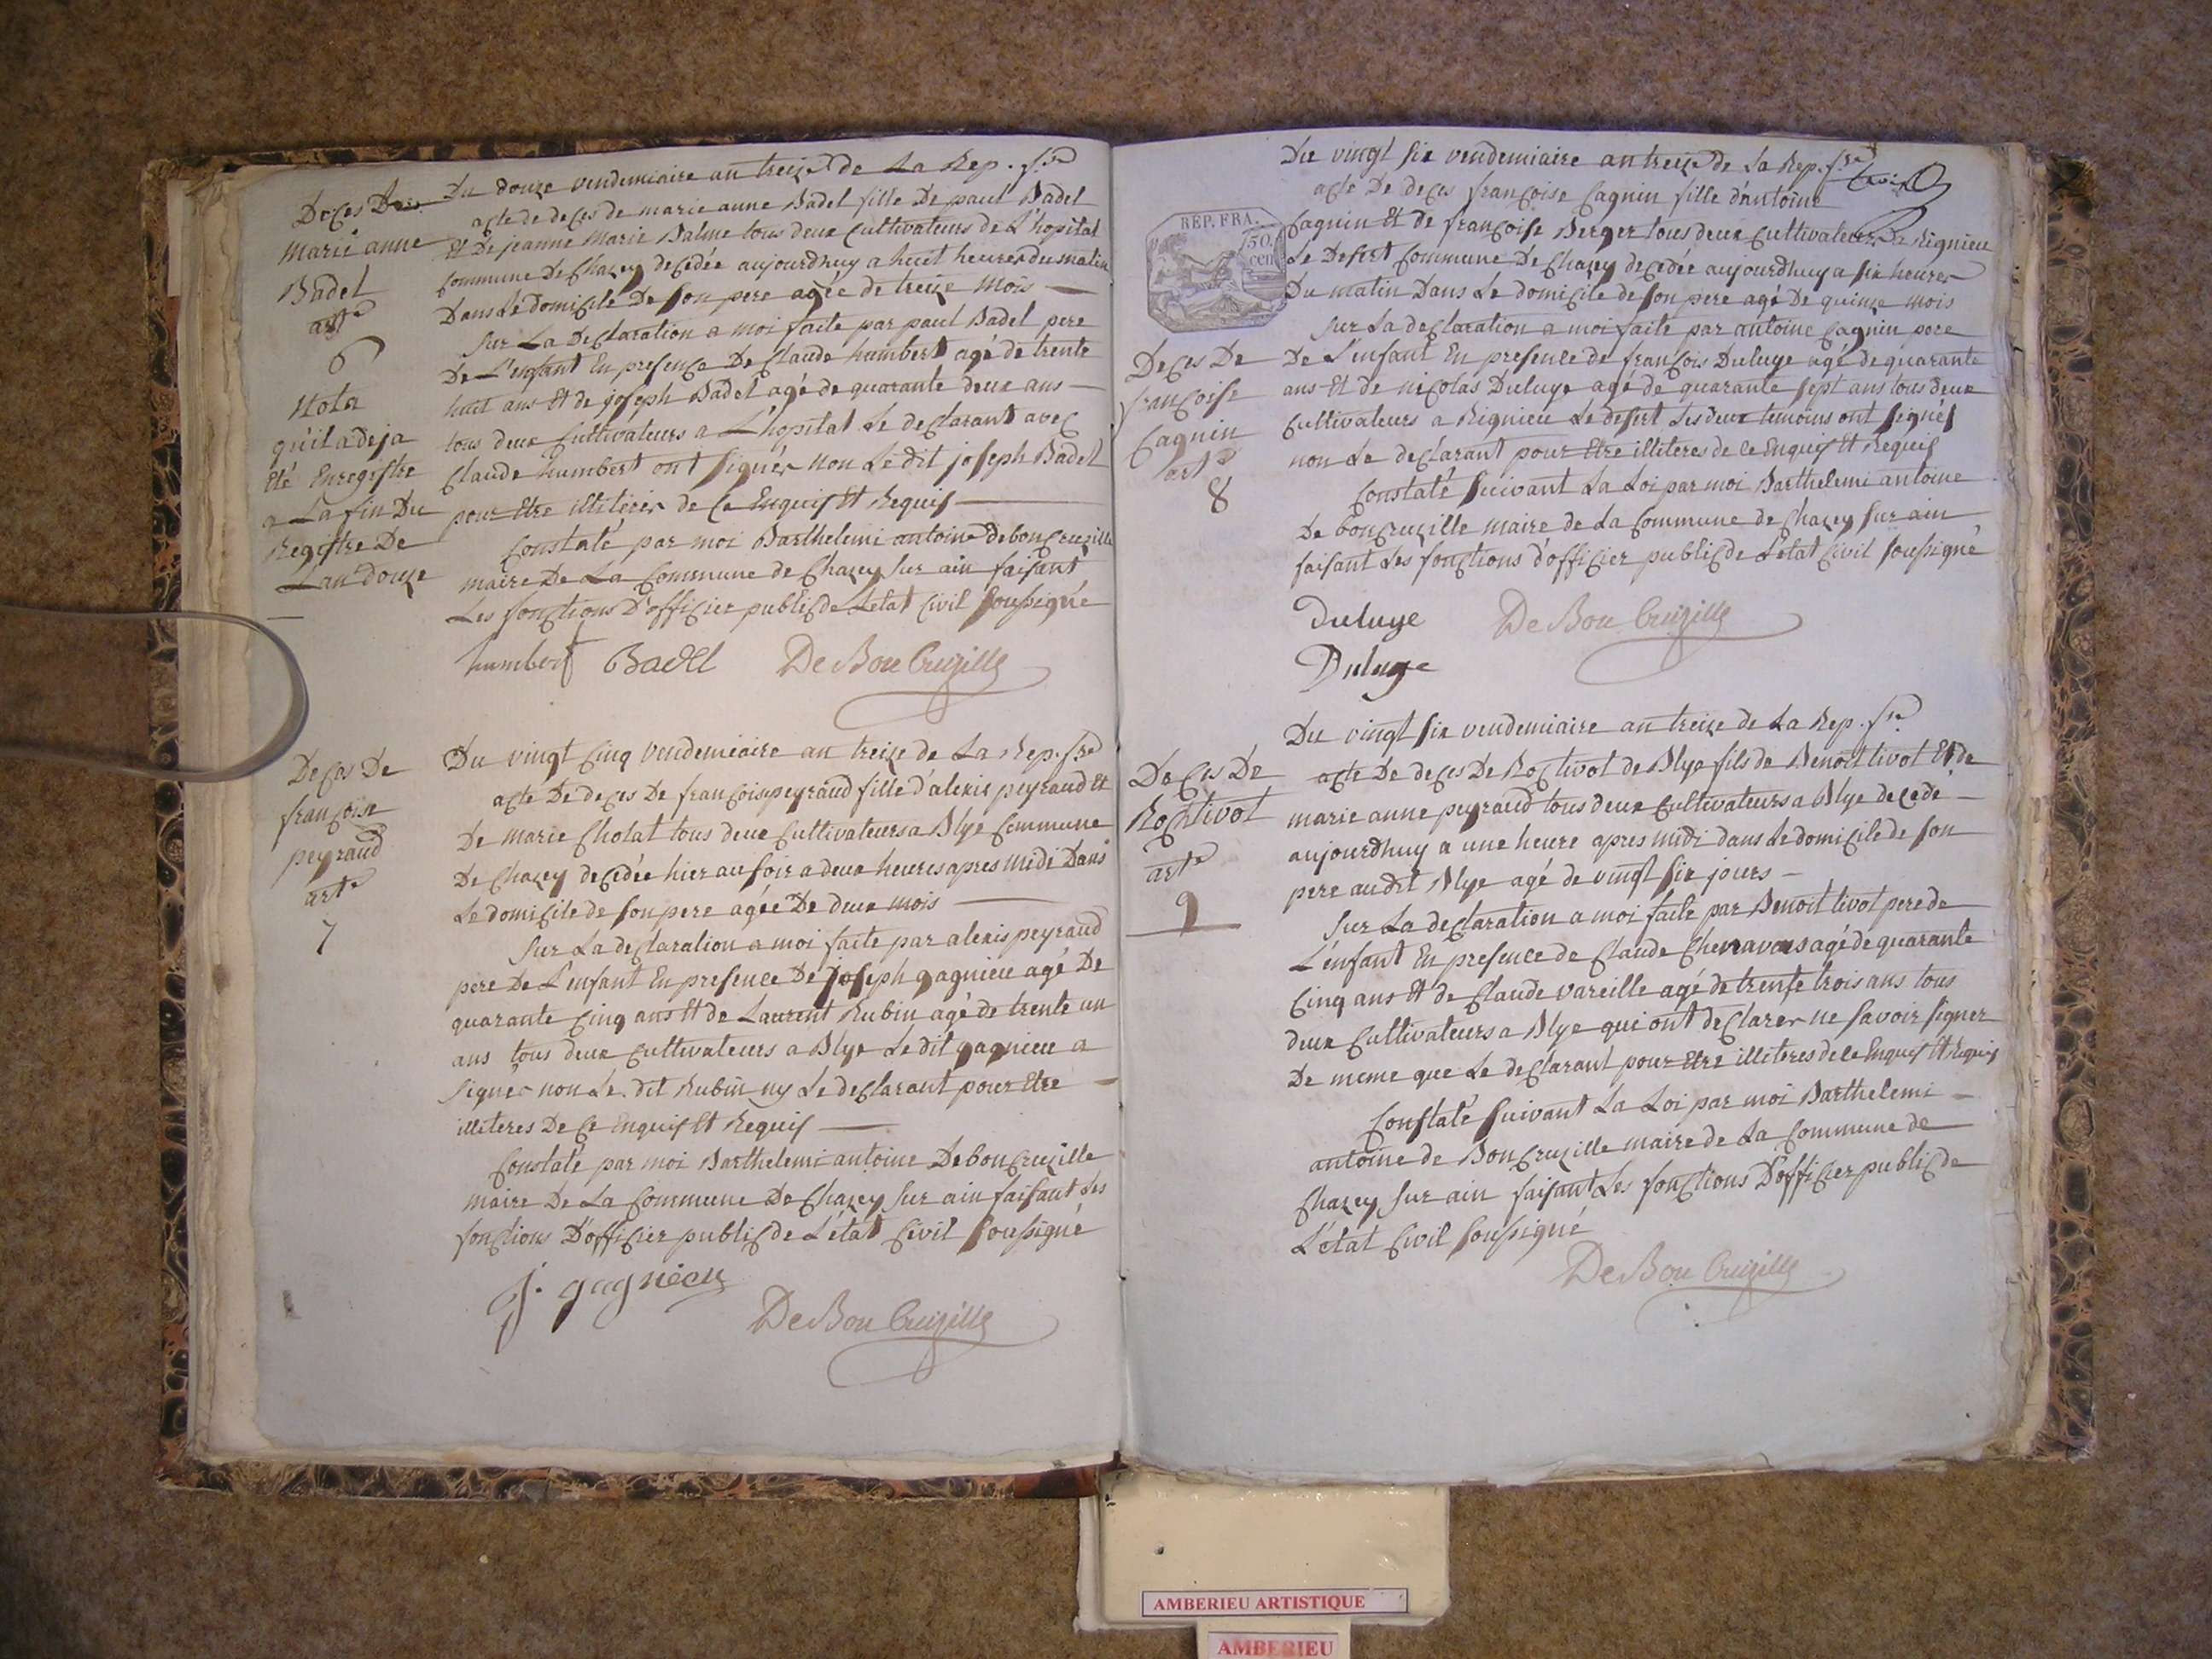 Deces De
marie anne
Badel
art.e
6
Nota
qu'il a deja
Eté Enregistre
a La fin Du
Registre De
L'an douze
Du douze vendemiaire an treize de La Rep. fse
acte de deces de marie anne Badel fille De paul Badel
Et De jeanne Marie Balme tous deux Cultivateurs de L'hopital
Commune De Chazey decedée aujourdhuy a huit heures du matin
Dans Le Domicile De son pere agée de treize mois
Sur La Declaration a moi faite par paul Badel pere
De L'enfant En presence De Claude humbert agé de trente
huit ans Et de joseph Badel agé de quarante deux ans
tous deux Cultivateurs a L'hopital Le declarant avec
Claude humbert ont signés non Le dit joseph Badel
pour Etre illiteres de Ce Enquis Et Requis
Constaté par moi Barthelemi antoine de bonCruzille
maire De La Commune de Chazey sur ain faisant
Les fonctions D'officier public de Letat Civil soussigné
humbert Badel De Bon Cruzille
Deces De
françoise
peyraud
art.e
7
Du vingt Cinq vendemiaire an treize de La Rep. fse
acte De deces De françoise peyraud fille d'alexis peyraud Et
De marie Cholat tous deux Cultivateurs a Blye Commune
De Chazey decedée hier au soir a deux heures apres midi Dans
Le domicile de son pere agée De deux mois
Sur La declaration a moi faite par alexis peyraud
pere De L'enfant En presence De joseph gagnieu agé De
quarante Cinq ans Et de Laurent Rubin agé de trente un
ans tous deux Cultivateurs a Blye Le dit gagnieu a
signer non Le dit Rubin ny Le declarant pour Etre
illiteres De Ce Enquis Et Requis
Constaté par moi Barthelemi antoine De bonCruzille
maire De La Commune De Chazey sur ain faisant Les
fonctions D'officier public de L'état Civil soussigné
J. gagnieu
De Bon Cruzille
REP. FRA.
50.
cen
Du vingt six vendemiaire an treize de La Rep. fse
acte De deces françoise Cagnin fille d'antoine
Cagnin Et de françoise Berger tous deux Cultivateurs De Rignieu
Le Desert Commune De Chazey decedée aujourdhuy a six heures
Du matin Dans Le domicile de son pere agé De quinze mois
Sur La declaration a moi faite par antoine Cagnin pere
De L'enfant En presence de françois Duluye agé de quarante
ans Et de nicolas Duluye agé de quarante sept ans tous deux
Cultivateurs a Rignieu Le desert Les deux temoins ont signés
non Le declarant pour Etre illiteres de Ce Enquis Et Requis
Constaté suivant La Loi par moi Barthelemi antoine
De bonCruzille maire de La Commune de Chazey sur ain
faisant Les fonctions d'officier public de L'état Civil soussigné
Duluye De Bon Cruzille
Duluye
Deces De
françoise
Cagnin
art.e
8
Du vingt six vendemiaire an treize de La Rep. fse
acte De deces De Roc tivot de Blye fils de Benoit tivot Et de
marie anne peyraud tous deux Cultivateurs a Blye decedé
aujourdhuy a une heure apres midi dans Le domicile de son
pere audit Blye agé de vingt six jours
Sur La declaration a moi faite par Benoit tivot pere de
L'enfant En presence de Claude Chenavous agé de quarante
Cinq ans Et de Claude vareille agé de trente trois ans tous
deux Cultivateurs a Blye qui ont declarer ne savoir signer
De meme que Le declarant pour Etre illiteres de Ce Enquis Et Requis
Constaté suivant La Loi par moi Barthelemi
antoine de BonCruzille maire de La Commune de
Chazey sur ain faisant Les fonctions D'officier public de
L'état Civil soussigné
De Bon Cruzille
Deces De
Roc tivot
art.e
9
AMBERIEU ARTISTIQUE
AMBERIEU